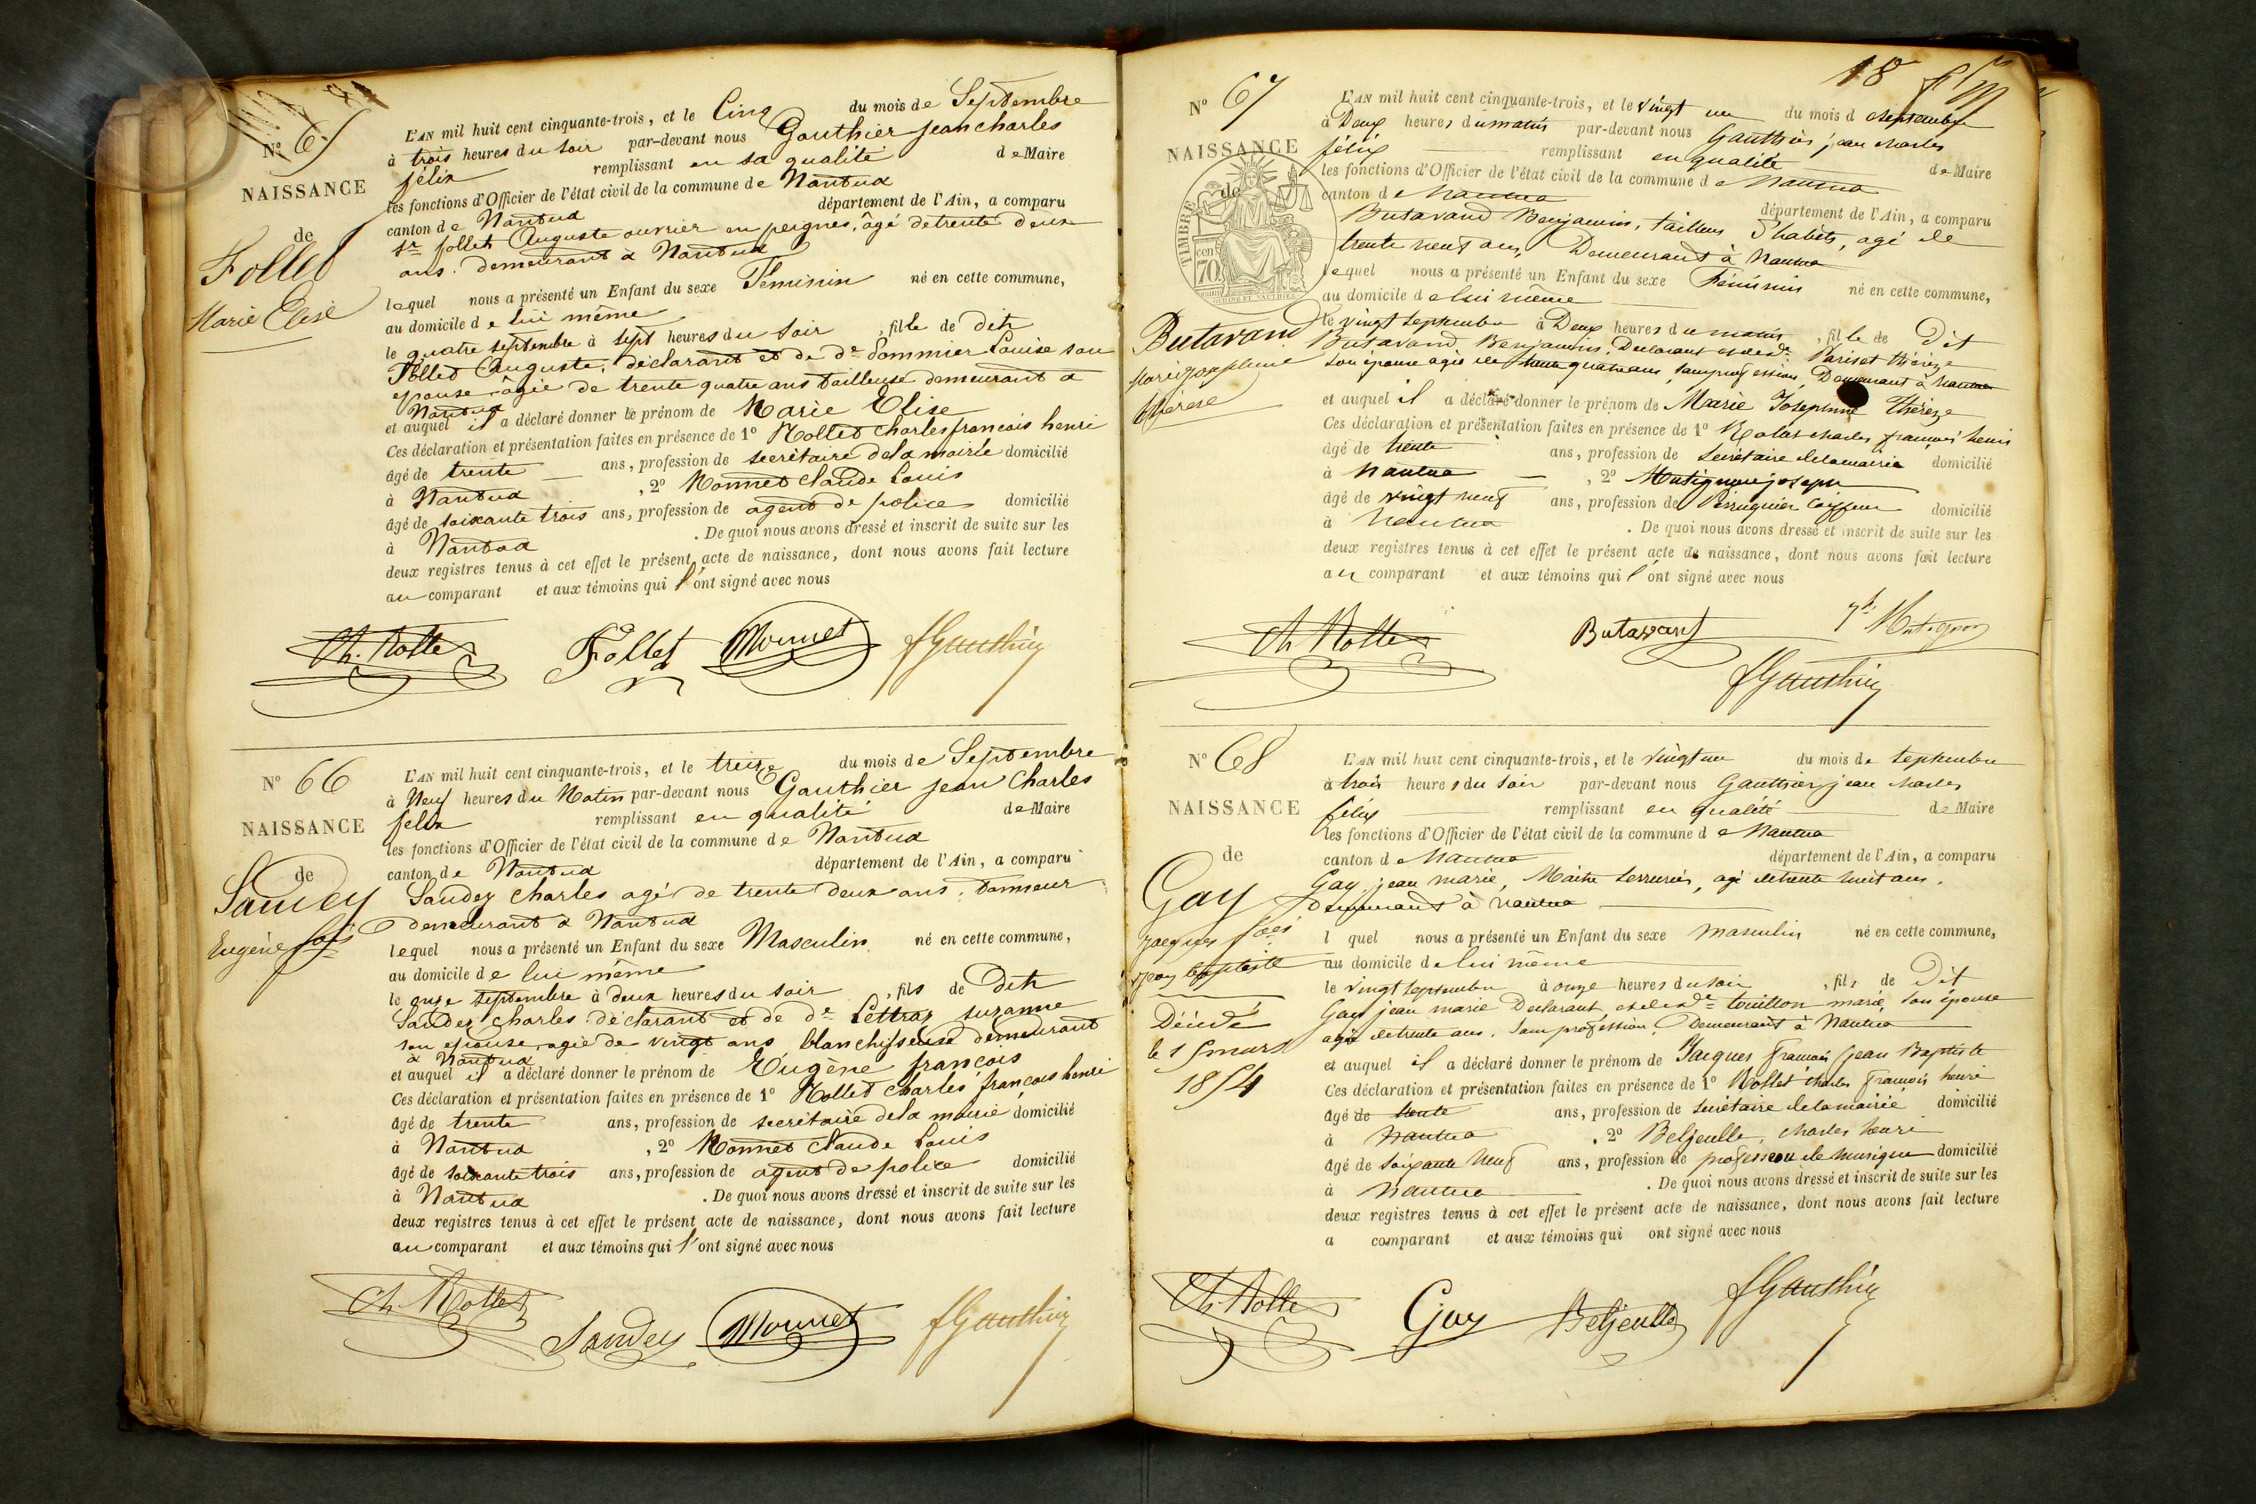 Nº 65
NAISSANCE
de
Follet
Marie Elise
L'AN mil huit cent cinquante-trois, et le Cinq du mois de Septembre
à trois heures du soir par-devant nous Gauthier jean charles
félix remplissant en sa qualité de Maire
les fonctions d'Officier de l'état civil de la commune de Nantua
canton de Nantua département de l'Ain, a comparu
Sr follet Auguste ouvrier en peignes, âgé de trente deux
ans. demeurant à Nantua
lequel nous a présenté un Enfant du sexe Feminin né en cette commune,
au domicile de lui même
le quatre septembre à sept heures du soir, fille de dit
follet Auguste, déclarant et de de Sommier Louise son
epouse âgée de trente quatre ans tailleuse demeurant à
Nantua
et auquel il a déclaré donner le prénom de Marie Elise
Ces déclaration et présentation faites en présence de 1º Rollet charles francois henri
âgé de trente ans, profession de secrétaire de la mairie domicilié
à Nantua, 2º Monnet claude Louis
âgé de soixante trois ans, profession de agent de police domicilié
à Nantua . De quoi nous avons dressé et inscrit de suite sur les
deux registres tenus à cet effet le présent acte de naissance, dont nous avons fait lecture
au comparant et aux témoins qui l'ont signé avec nous
Ch. Rollet Follet Monnet f Gauthier
Nº 66
NAISSANCE
de
Sandey
Eugène fois
L'AN mil huit cent cinquante-trois, et le treize du mois de Septembre
à Neuf heures du Matin par-devant nous Gauthier jean Charles
felix remplissant en qualité de Maire
les fonctions d'Officier de l'état civil de la commune de Nantua
canton de Nantua département de l'Ain, a comparu
Sandey charles agé de trente deux ans. tanneur
demeurant à Nantua
lequel nous a présenté un Enfant du sexe Masculin né en cette commune,
au domicile de lui même
le onze septembre à deux heures du soir, fils de Dit
Sandey charles déclarant et de de Lettraz suzanne
son epouse agée de vingt ans blanchisseuse demeurant
à Nantua
et auquel il a déclaré donner le prénom de Eugène françois
Ces déclaration et présentation faites en présence de 1º Rollet charles françois henri
âgé de trente ans, profession de secrétaire de la mairie domicilié
à Nantua, 2º Monnet claude Louis
âgé de soixante trois ans, profession de agent de police domicilié
à Nantua . De quoi nous avons dressé et inscrit de suite sur les
deux registres tenus à cet effet le présent acte de naissance, dont nous avons fait lecture
au comparant et aux témoins qui l'ont signé avec nous
Ch Rollet Sandey Monnet f Gauthier
18
Nº 67
NAISSANCE
de
TIMBRE
cen
70
Butavand
Marie josephine
thérese
L'AN mil huit cent cinquante-trois, et le vingt un du mois d septembre
à Deux heures du matin par-devant nous Gauthier jean charles
félix remplissant en qualité de Maire
les fonctions d'Officier de l'état civil de la commune de Nantua
canton de Nantua département de l'Ain, a comparu
Butavand Benjamin, tailleur d'habits, agé de
trente neuf ans, Demeurant à Nantua
lequel nous a présenté un Enfant du sexe Féminin né en cette commune,
au domicile de lui même
le vingt septembre à Deux heures du matin, fille de Dit
Butavand Benjamin, Declarant et de de Pariset thérèze
son épouse agée de trente quatre ans, sans profession, Demeurant à Nantua
et auquel il a déclaré donner le prénom de Marie Josephine Thérèze
Ces déclaration et présentation faites en présence de 1º Rolet charles françois henri
âgé de trente ans, profession de Secrétaire de la mairie domicilié
à Nantua, 2º Mutignon joseph
âgé de vingt neuf ans, profession de Perruquier Coiffeur domicilié
à Nantua . De quoi nous avons dressé et inscrit de suite sur les
deux registres tenus à cet effet le présent acte de naissance, dont nous avons fait lecture
au comparant et aux témoins qui l'ont signé avec nous
Ch Rollet Butavand Jh Mutignon
f Gauthier
Nº 68
NAISSANCE
de
Gay
jacques fois
jean baptiste
Décédé
le 15 mars
1854
L'AN mil huit cent cinquante-trois, et le vingt un du mois de septembre
à trois heures du soir par-devant nous Gauthier jean charles
félix remplissant en qualité de Maire
les fonctions d'Officier de l'état civil de la commune de Nantua
canton de Nantua département de l'Ain, a comparu
Gay jean marie, Maitre serrurier, agé de trente huit ans.
Demeurant à Nantua
l quel nous a présenté un Enfant du sexe masculin né en cette commune,
au domicile de lui même
le vingt septembre à onze heures du soir, fils de Dit
Gay jean marie Declarant, et de de touillon marie, son épouse
agée de trente ans. sans profession. Demeurant à Nantua
et auquel il a déclaré donner le prénom de Jacques françois jean Baptiste
Ces déclaration et présentation faites en présence de 1º Rollet charles françois henri
âgé de trente ans, profession de secrétaire de la mairie domicilié
à Nantua, 2º Beljeulle, charles henri
âgé de soixante neuf ans, profession de professeur de musique domicilié
à Nantua . De quoi nous avons dressé et inscrit de suite sur les
deux registres tenus à cet effet le présent acte de naissance, dont nous avons fait lecture
a comparant et aux témoins qui ont signé avec nous
Ch. Rollet Gay Beljeulle f Gauthier